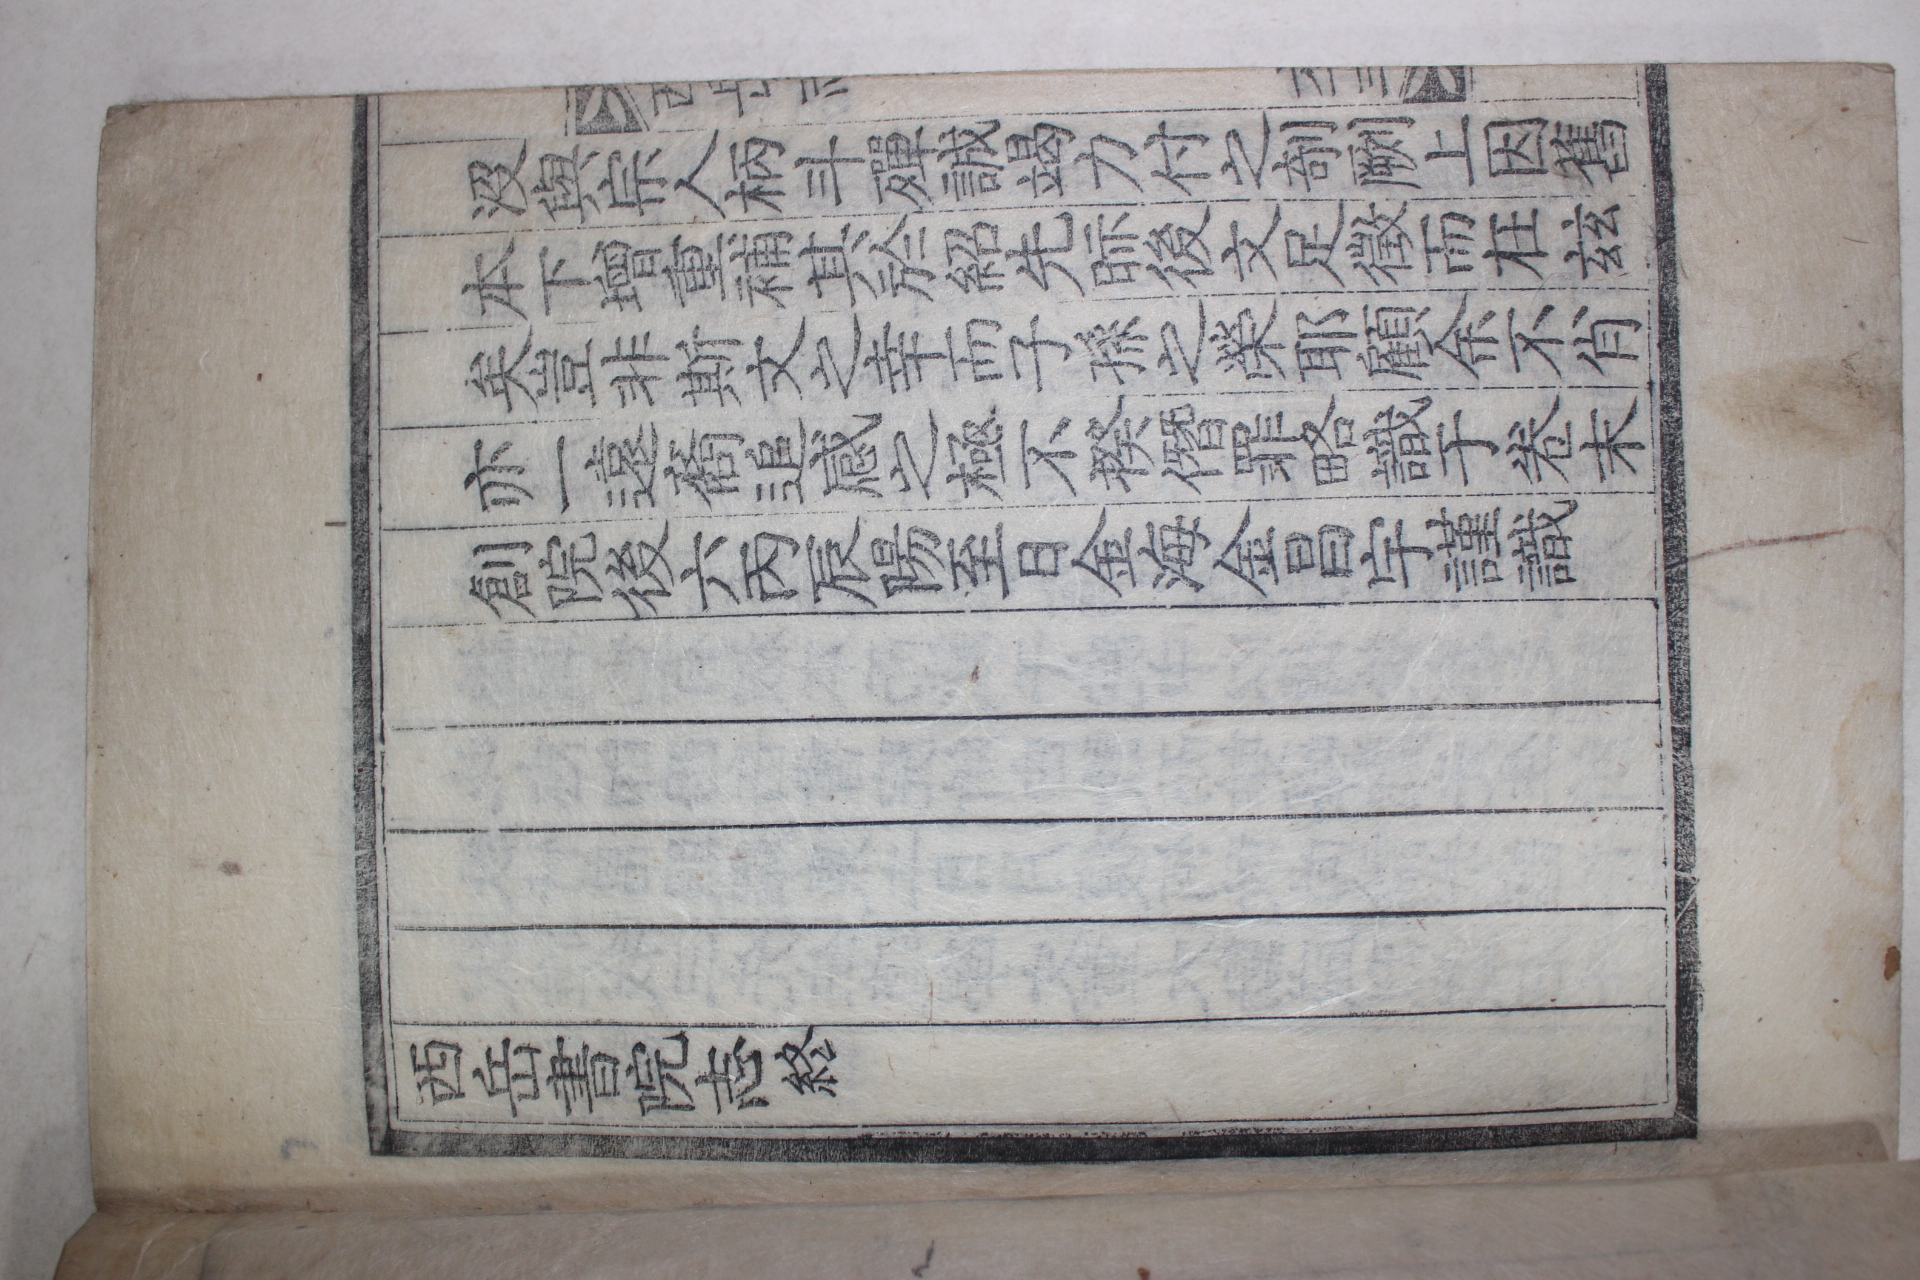 西岳志
六十三
沒與宗人柄斗殫誠竭力付之剞劂上因舊
本下增重補其於紹先眎後文足徵而在玆
矣豈非斯文之幸而子孫之榮耶顧余不肖
亦一遠裔追感之極不揆僭罪略識于卷末
創院後六丙辰陽至日金海金昌宇謹識
西岳書院志終